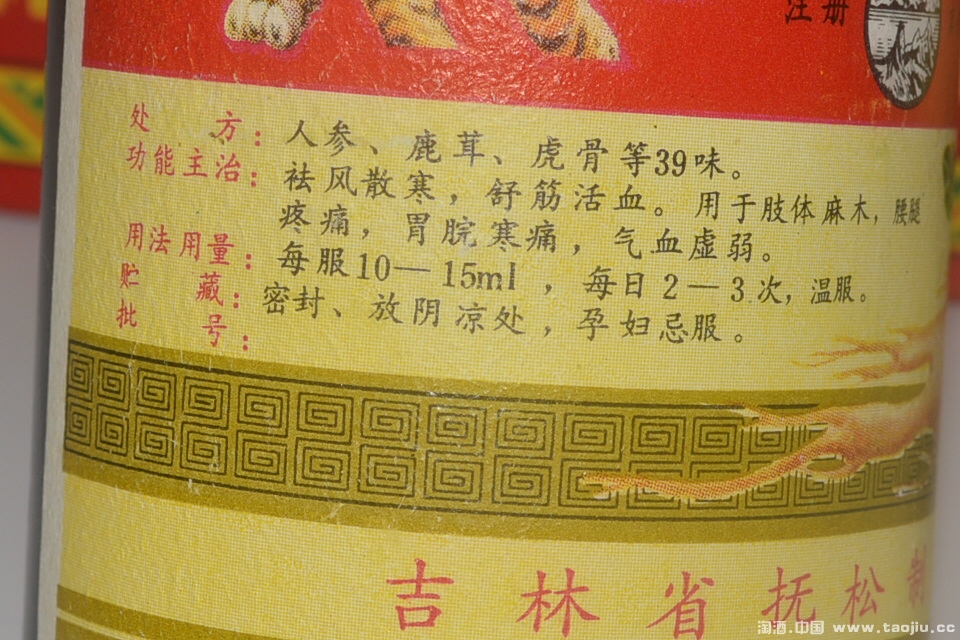 注册
处方：人参、鹿茸、虎骨等39味。
功能主治：祛风散寒，舒筋活血。用于肢体麻木，腰腿
疼痛，胃脘寒痛，气血虚弱。
用法用量：每服10—15ml，每日2—3次，温服。
贮藏：密封、放阴凉处，孕妇忌服。
批号：
吉林省抚松制
淘酒.中国 www.taojiu.cc